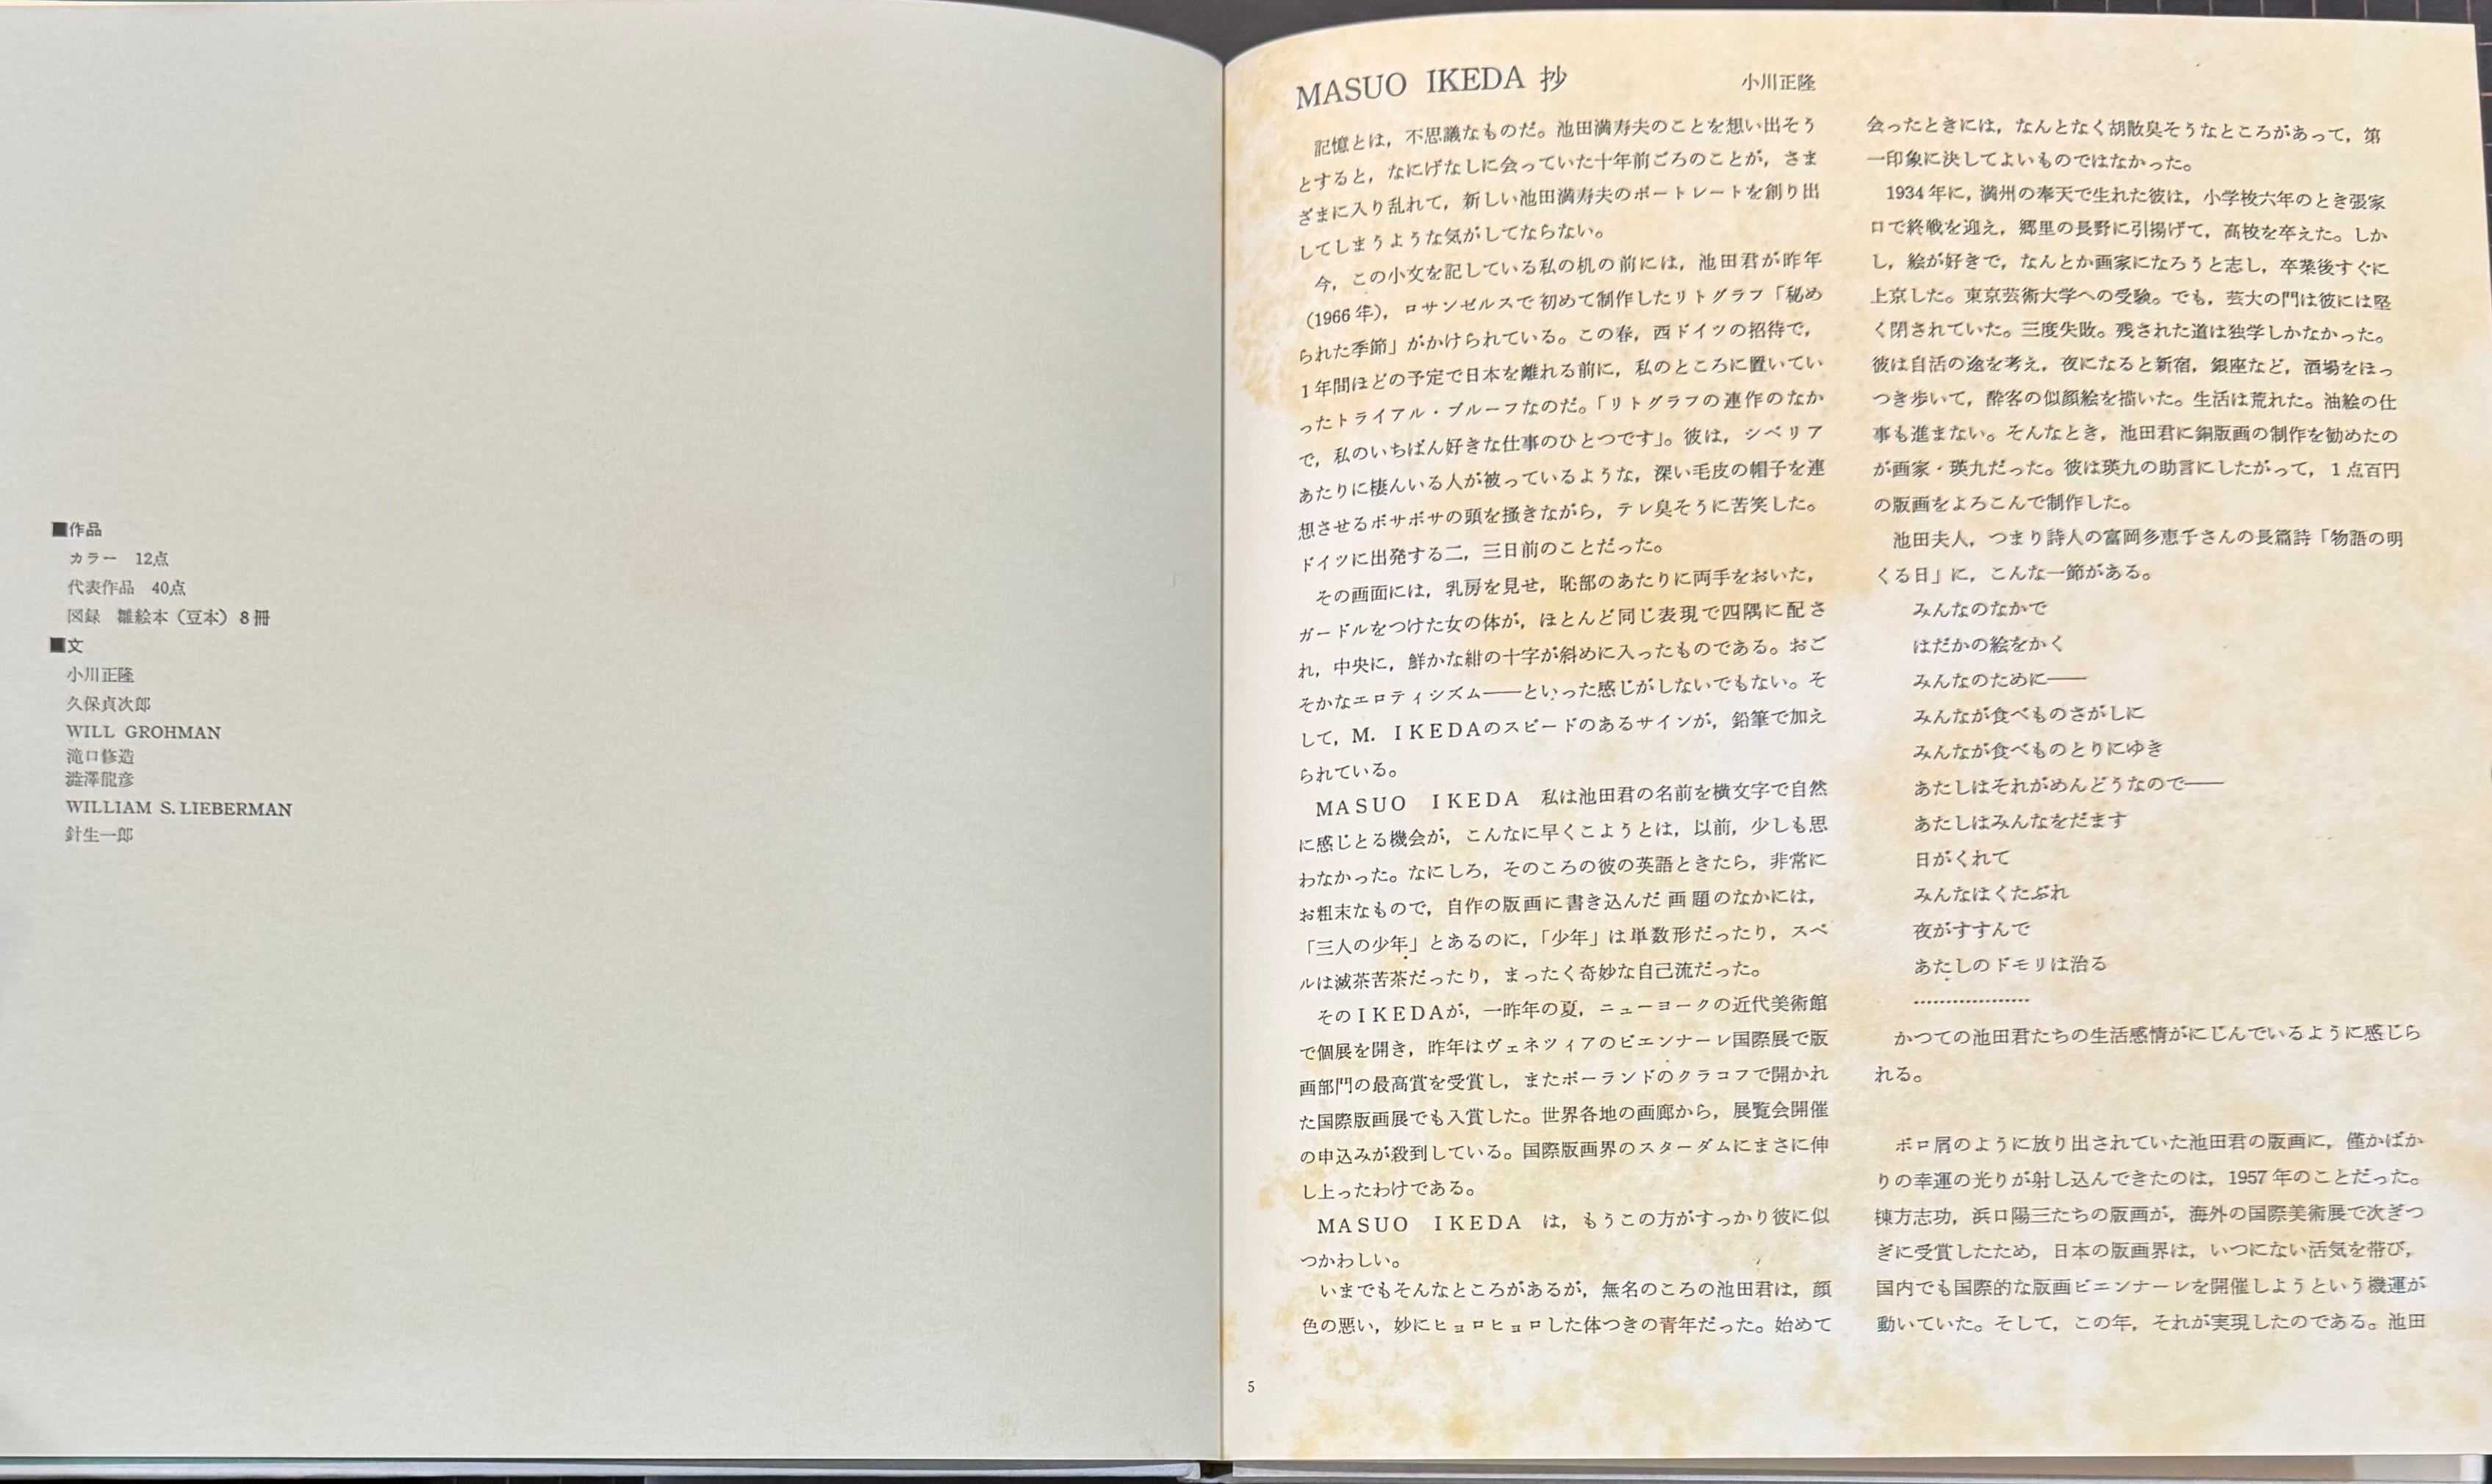 ■作品
カラー　12点
代表作品　40点
図録　雛絵本（豆本）8冊
■文
小川正隆
久保貞次郎
WILL GROHMAN
滝口修造
澁澤龍彦
WILLIAM S. LIEBERMAN
針生一郎
MASUO IKEDA 抄
小川正隆
記憶とは，不思議なものだ。池田満寿夫のことを想い出そう
とすると，なにげなしに会っていた十年前ごろのことが，さま
ざまに入り乱れて，新しい池田満寿夫のポートレートを創り出
してしまうような気がしてならない。
今，この小文を記している私の机の前には，池田君が昨年
（1966年），ロサンゼルスで初めて制作したリトグラフ「秘め
られた季節」がかけられている。この春，西ドイツの招待で，
1年間ほどの予定で日本を離れる前に，私のところに置いてい
ったトライアル・プルーフなのだ。「リトグラフの連作のなか
で，私のいちばん好きな仕事のひとつです」。彼は，シベリア
あたりに棲んいる人が被っているような，深い毛皮の帽子を連
想させるボサボサの頭を掻きながら，テレ臭そうに苦笑した。
ドイツに出発する二，三日前のことだった。
その画面には，乳房を見せ，恥部のあたりに両手をおいた，
ガードルをつけた女の体が，ほとんど同じ表現で四隅に配さ
れ，中央に，鮮かな紺の十字が斜めに入ったものである。おご
そかなエロティシズム――といった感じがしないでもない。そ
して，M．IKEDAのスピードのあるサインが，鉛筆で加え
られている。
MASUO　IKEDA　私は池田君の名前を横文字で自然
に感じとる機会が，こんなに早くこようとは，以前，少しも思
わなかった。なにしろ，そのころの彼の英語ときたら，非常に
お粗末なもので，自作の版画に書き込んだ画題のなかには，
「三人の少年」とあるのに，「少年」は単数形だったり，スペ
ルは滅茶苦茶だったり，まったく奇妙な自己流だった。
そのIKEDAが，一昨年の夏，ニューヨークの近代美術館
で個展を開き，昨年はヴェネツィアのビエンナーレ国際展で版
画部門の最高賞を受賞し，またポーランドのクラコフで開かれ
た国際版画展でも入賞した。世界各地の画廊から，展覧会開催
の申込みが殺到している。国際版画界のスターダムにまさに伸
し上ったわけである。
MASUO　IKEDA　は，もうこの方がすっかり彼に似
つかわしい。
いまでもそんなところがあるが，無名のころの池田君は，顔
色の悪い，妙にヒョロヒョロした体つきの青年だった。始めて
会ったときには，なんとなく胡散臭そうなところがあって，第
一印象に決してよいものではなかった。
1934年に，満州の奉天で生れた彼は，小学校六年のとき張家
口で終戦を迎え，郷里の長野に引揚げて，高校を卒えた。しか
し，絵が好きで，なんとか画家になろうと志し，卒業後すぐに
上京した。東京芸術大学への受験。でも，芸大の門は彼には堅
く閉されていた。三度失敗。残された道は独学しかなかった。
彼は自活の途を考え，夜になると新宿，銀座など，酒場をほっ
つき歩いて，酔客の似顔絵を描いた。生活は荒れた。油絵の仕
事も進まない。そんなとき，池田君に銅版画の制作を勧めたの
が画家・瑛九だった。彼は瑛九の助言にしたがって，1点百円
の版画をよろこんで制作した。
池田夫人，つまり詩人の富岡多恵子さんの長篇詩「物語の明
くる日」に，こんな一節がある。
みんなのなかで
はだかの絵をかく
みんなのために――
みんなが食べものさがしに
みんなが食べものとりにゆき
あたしはそれがめんどうなので――
あたしはみんなをだます
日がくれて
みんなはくたぶれ
夜がすすんで
あたしのドモリは治る
………………
かつての池田君たちの生活感情がにじんでいるように感じら
れる。
ボロ屑のように放り出されていた池田君の版画に，僅かばか
りの幸運の光りが射し込んできたのは，1957年のことだった。
棟方志功，浜口陽三たちの版画が，海外の国際美術展で次ぎつ
ぎに受賞したため，日本の版画界は，いつにない活気を帯び，
国内でも国際的な版画ビエンナーレを開催しようという機運が
動いていた。そして，この年，それが実現したのである。池田
5